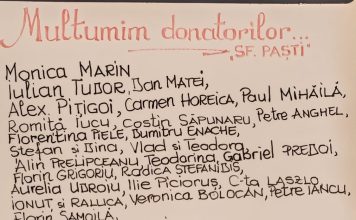 Multumim donatorilor...
"SF. PAȘTI"
Monica MARIN,
Iulian TUDOR, Dan MATEI,
Alex PIȚIGOI, Carmen HOREICA, Paul MIHĂILĂ,
Romiță Iucu, Costin SĂPUNARU, Petre ANGHEL,
Florentina PIELE, Dumitru ENACHE,
Ștefan și Dina, Vlad și Teodora,
Alin PRELIPCEANU, Teodorina, Gabriel PREDOI,
Florin GRIGORIU, Radica ȘTEFANIDIS,
Aurelia UDROIU, Ilie Piciorus, C-ta LASZLO,
IONUȚ și RALUCA, Veronica BOLOCAN, PETRE IANCU,
Florin SAMOILĂ